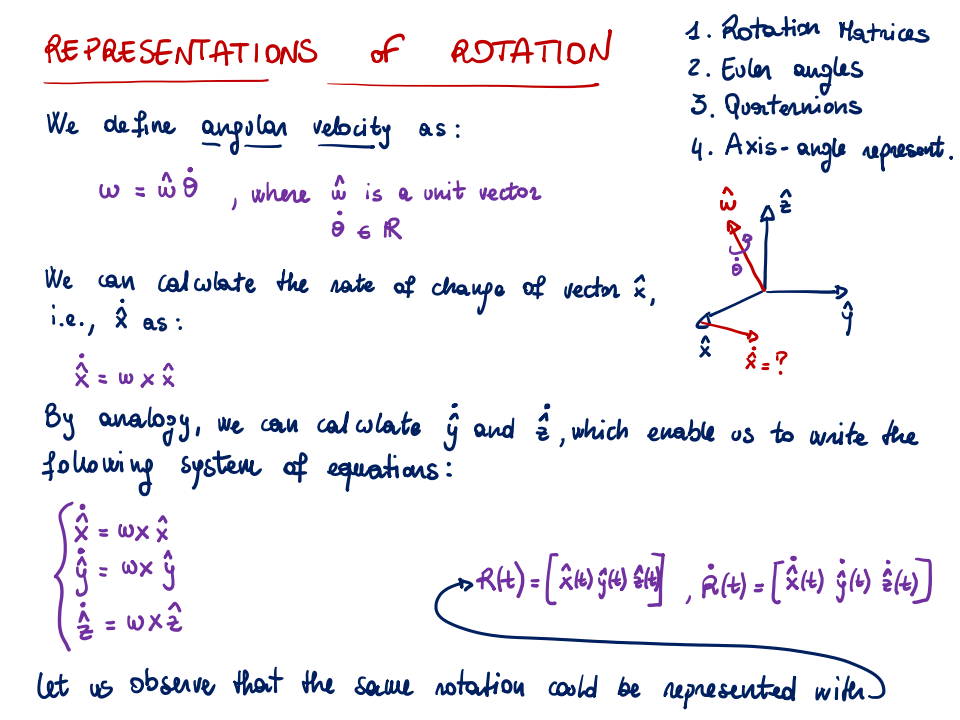 REPRESENTATIONS of ROTATION
1. Rotation Matrices
2. Euler angles
3. Quaternions
4. Axis-angle represent.
We define angular velocity as:
ω = ω̂ θ̇ , where ω̂ is a unit vector
θ̇ ∈ ℝ
ω̂
ẑ
θ̇
ŷ
x̂
x̂̇ = ?
We can calculate the rate of change of vector x̂,
i.e., x̂̇ as:
x̂̇ = ω × x̂
By analogy, we can calculate ŷ̇ and ẑ̇, which enable us to write the
following system of equations:
x̂̇ = ω × x̂
ŷ̇ = ω × ŷ
ẑ̇ = ω × ẑ
R(t) = [x̂(t) ŷ(t) ẑ(t)] , Ṙ(t) = [x̂̇(t) ŷ̇(t) ẑ̇(t)]
Let us observe that the same rotation could be represented with